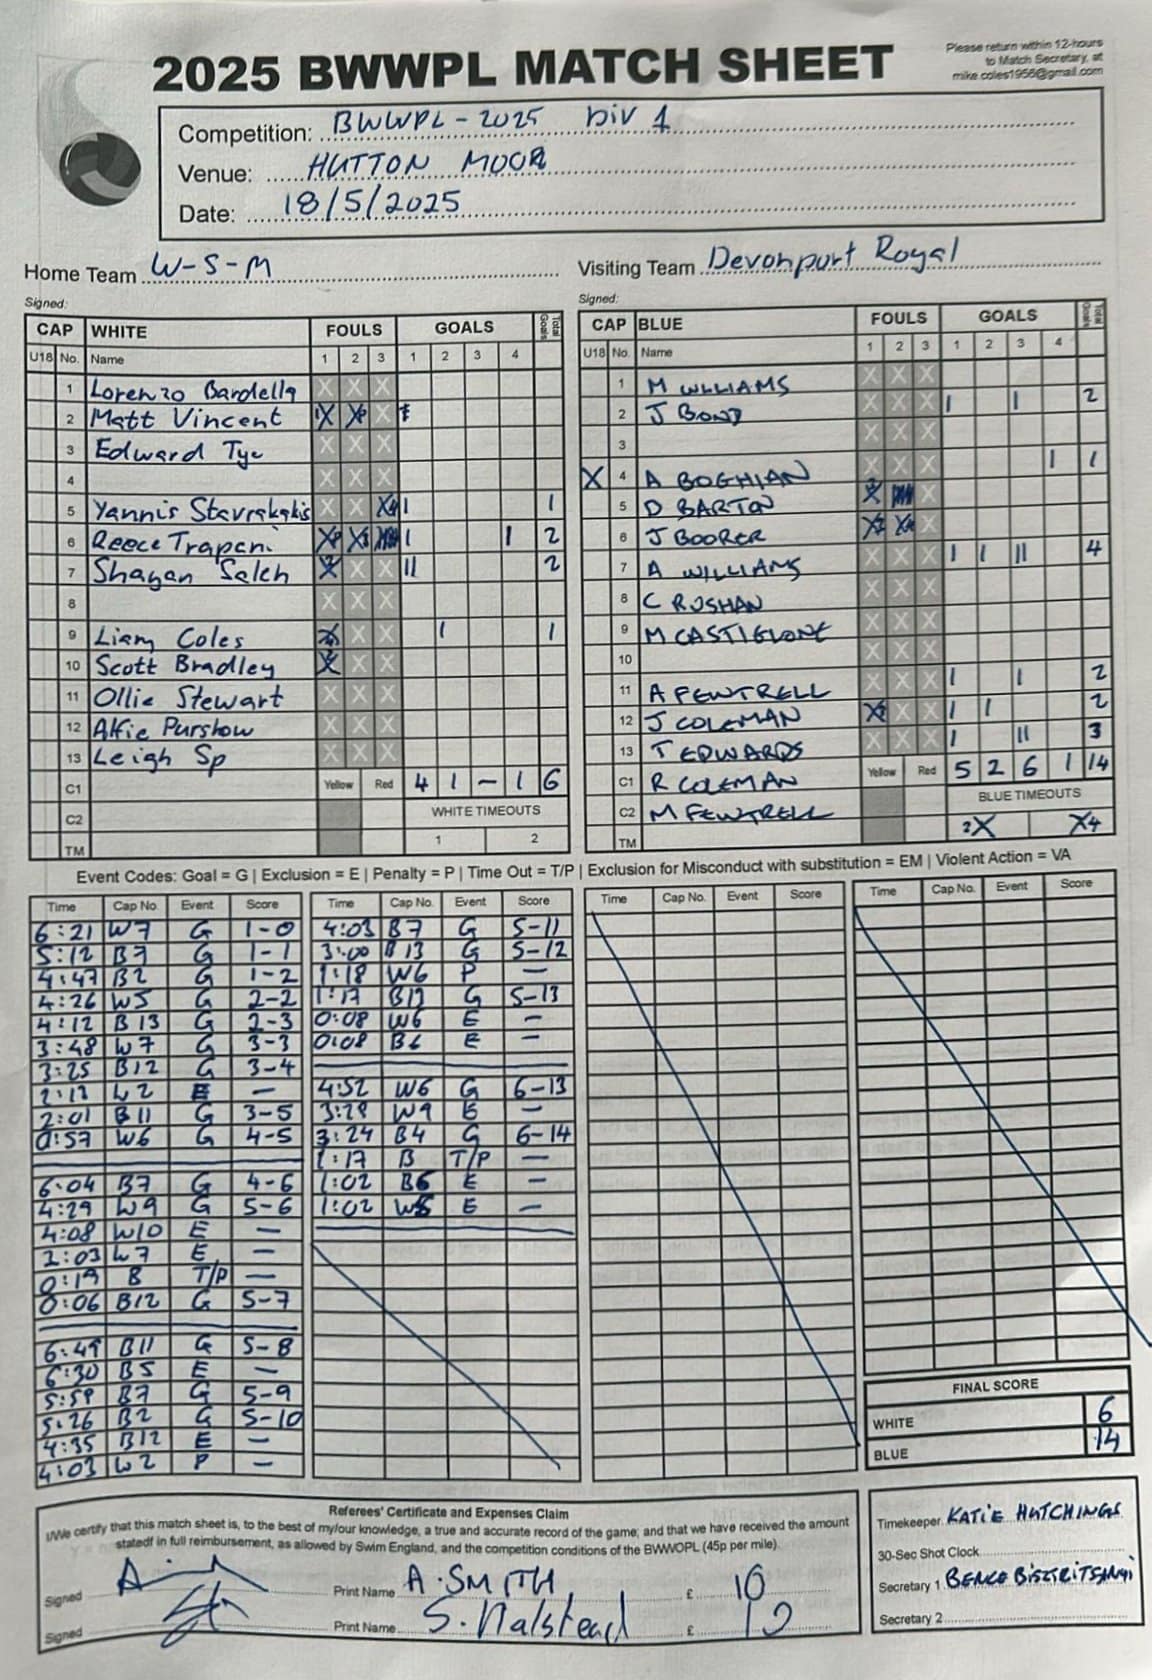 2025 BWWPL MATCH SHEET
Please return within 12-hours
to Match Secretary, at
mike.coles1956@gmail.com
Competition: BWWPL-2025 Div 1
Venue: HUTTON MOOR
Date: 18/5/2025
Home Team W-S-M
Visiting Team Devonport Royal
Signed:
CAP WHITE FOULS GOALS Total Goals
U18 No. Name 1 2 3 1 2 3 4
1 Lorenzo Bardella X X X
2 Matt Vincent X X X
3 Edward Tye X X X
4 X X X
5 Yannis Stavrakakis X X X 1 1
6 Reece Trapani X X 1 1 2
7 Shayan Saleh X X X 11 2
8 X X X
9 Liam Coles X X 1 1
10 Scott Bradley X X X
11 Ollie Stewart X X X
12 Alfie Purshow X X X
13 Leigh Sp X X X
C1 Yellow Red 4 1 - 1 6
C2 WHITE TIMEOUTS
TM 1 2
Signed:
CAP BLUE FOULS GOALS Total Goals
U18 No. Name 1 2 3 1 2 3 4
1 M WILLIAMS X X X
2 J BOND X X X 1 1 2
3 X X X
X 4 A BOGHIAN X X X 1 1
5 D BARTON X X
6 J BOORER X X X
7 A WILLIAMS X X X 1 1 11 4
8 C RUSHAN X X X
9 M CASTIGLONE X X X
10 X X X
11 A FEWTRELL X X X 1 1 2
12 J COLEMAN X X X 1 1 2
13 T EDWARDS X X X 1 11 3
C1 R COLEMAN Yellow Red 5 2 6 1 14
C2 M FEWTRELL BLUE TIMEOUTS
TM 2X X4
Event Codes: Goal = G | Exclusion = E | Penalty = P | Time Out = T/P | Exclusion for Misconduct with substitution = EM | Violent Action = VA
Time Cap No. Event Score
6:21 W7 G 1-0
5:12 B7 G 1-1
4:47 B2 G 1-2
4:26 W5 G 2-2
4:12 B13 G 2-3
3:48 W7 G 3-3
3:25 B12 G 3-4
2:13 W2 E -
2:01 B11 G 3-5
0:57 W6 G 4-5
6:04 B7 G 4-6
4:29 W9 G 5-6
4:08 W10 E -
2:03 W7 E -
0:19 B T/P -
0:06 B12 G 5-7
6:49 B11 G 5-8
6:30 B5 E -
5:59 B7 G 5-9
5:26 B2 G 5-10
4:35 B12 E -
4:03 W2 P -
Time Cap No. Event Score
4:03 B7 G 5-11
3:00 B13 G 5-12
1:18 W6 P -
1:17 B13 G 5-13
0:08 W6 E -
0:08 B6 E -
4:52 W6 G 6-13
3:29 W9 E -
3:24 B4 G 6-14
1:17 B T/P -
1:02 B6 E -
1:02 W5 E -
Time Cap No. Event Score
Time Cap No. Event Score
FINAL SCORE
WHITE 6
BLUE 14
Referees' Certificate and Expenses Claim
I/We certify that this match sheet is, to the best of my/our knowledge, a true and accurate record of the game; and that we have received the amount
statedf in full reimbursement, as allowed by Swim England, and the competition conditions of the BWWOPL (45p per mile).
Signed Print Name A. SMITH £ 10
Signed Print Name S. Halstead £ 10
Timekeeper KATIE HUTCHINGS
30-Sec Shot Clock
Secretary 1 BENCE BISZTRITSANYI
Secretary 2